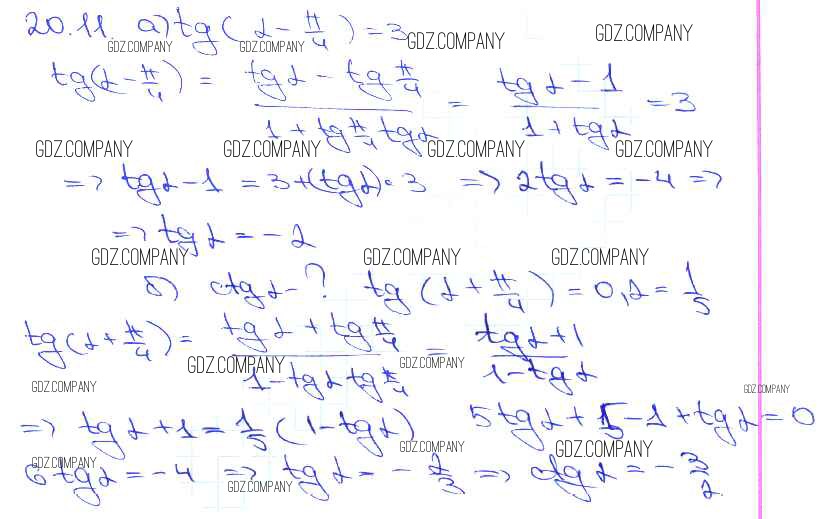 20.11. а) tg(α - π/4) = 3
GDZ.COMPANY GDZ.COMPANY GDZ.COMPANY GDZ.COMPANY
tg(α - π/4) = (tgα - tg π/4)/(1 + tg π/4 tgα) = (tgα - 1)/(1 + tgα) = 3
GDZ.COMPANY GDZ.COMPANY GDZ.COMPANY GDZ.COMPANY
=> tgα - 1 = 3 + (tgα)·3 => 2tgα = -4 =>
=> tgα = -2
GDZ.COMPANY GDZ.COMPANY GDZ.COMPANY
б) ctgα - ? tg(α + π/4) = 0,2 = 1/5
tg(α + π/4) = (tgα + tg π/4)/(1 - tgα tg π/4) = (tgα + 1)/(1 - tgα)
GDZ.COMPANY GDZ.COMPANY
GDZ.COMPANY GDZ.COMPANY
=> tgα + 1 = 1/5 (1 - tgα) 5tgα + 5 - 1 + tgα = 0
GDZ.COMPANY GDZ.COMPANY GDZ.COMPANY
6tgα = -4 => tgα = -2/3 => ctgα = -3/2.
GDZ.COMPANY GDZ.COMPANY